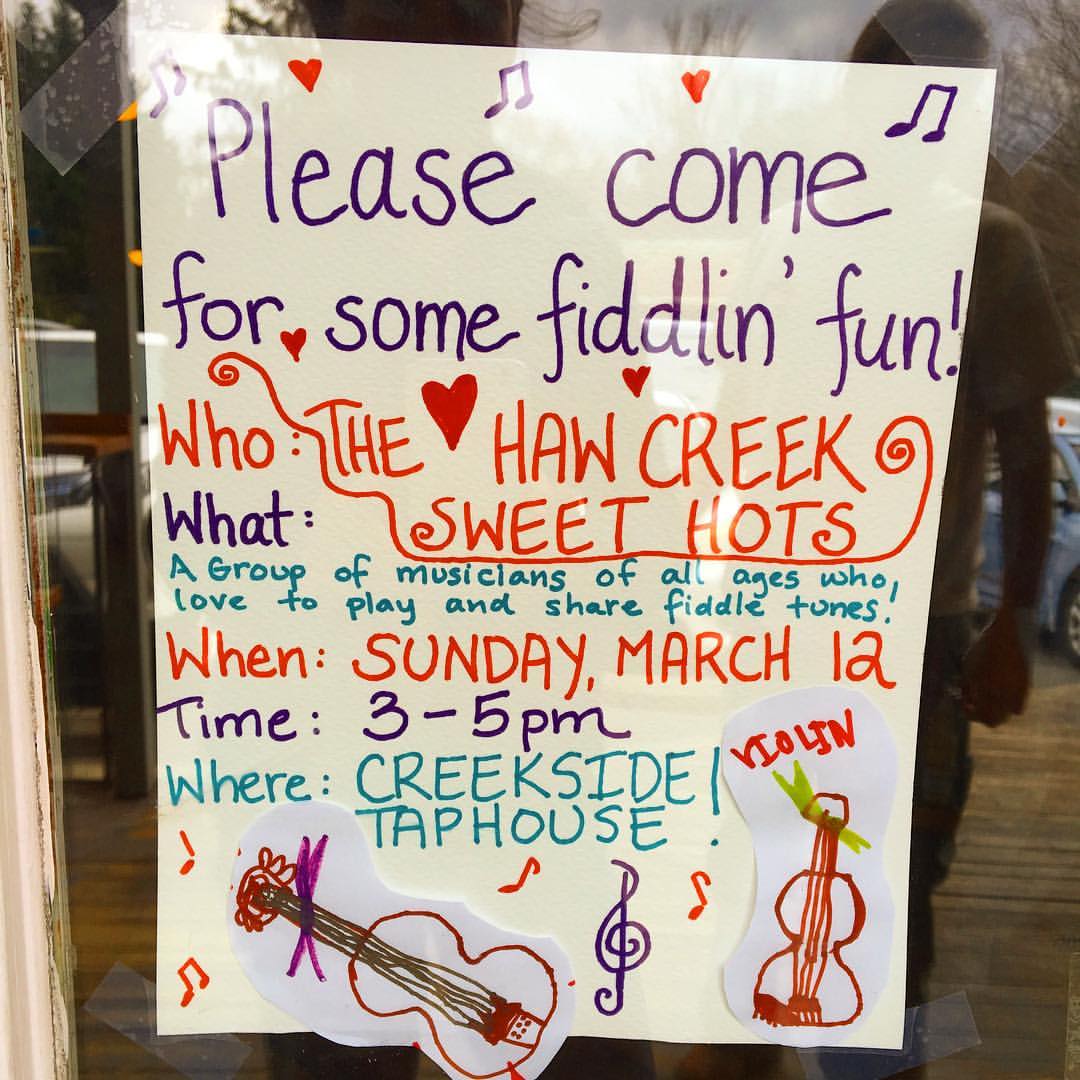 Please come
for some fiddlin' fun!
Who: THE HAW CREEK
SWEET HOTS
What:
A Group of musicians of all ages who
love to play and share fiddle tunes!
When: SUNDAY, MARCH 12
Time: 3-5pm
Where: CREEKSIDE
TAPHOUSE!
VIOLIN